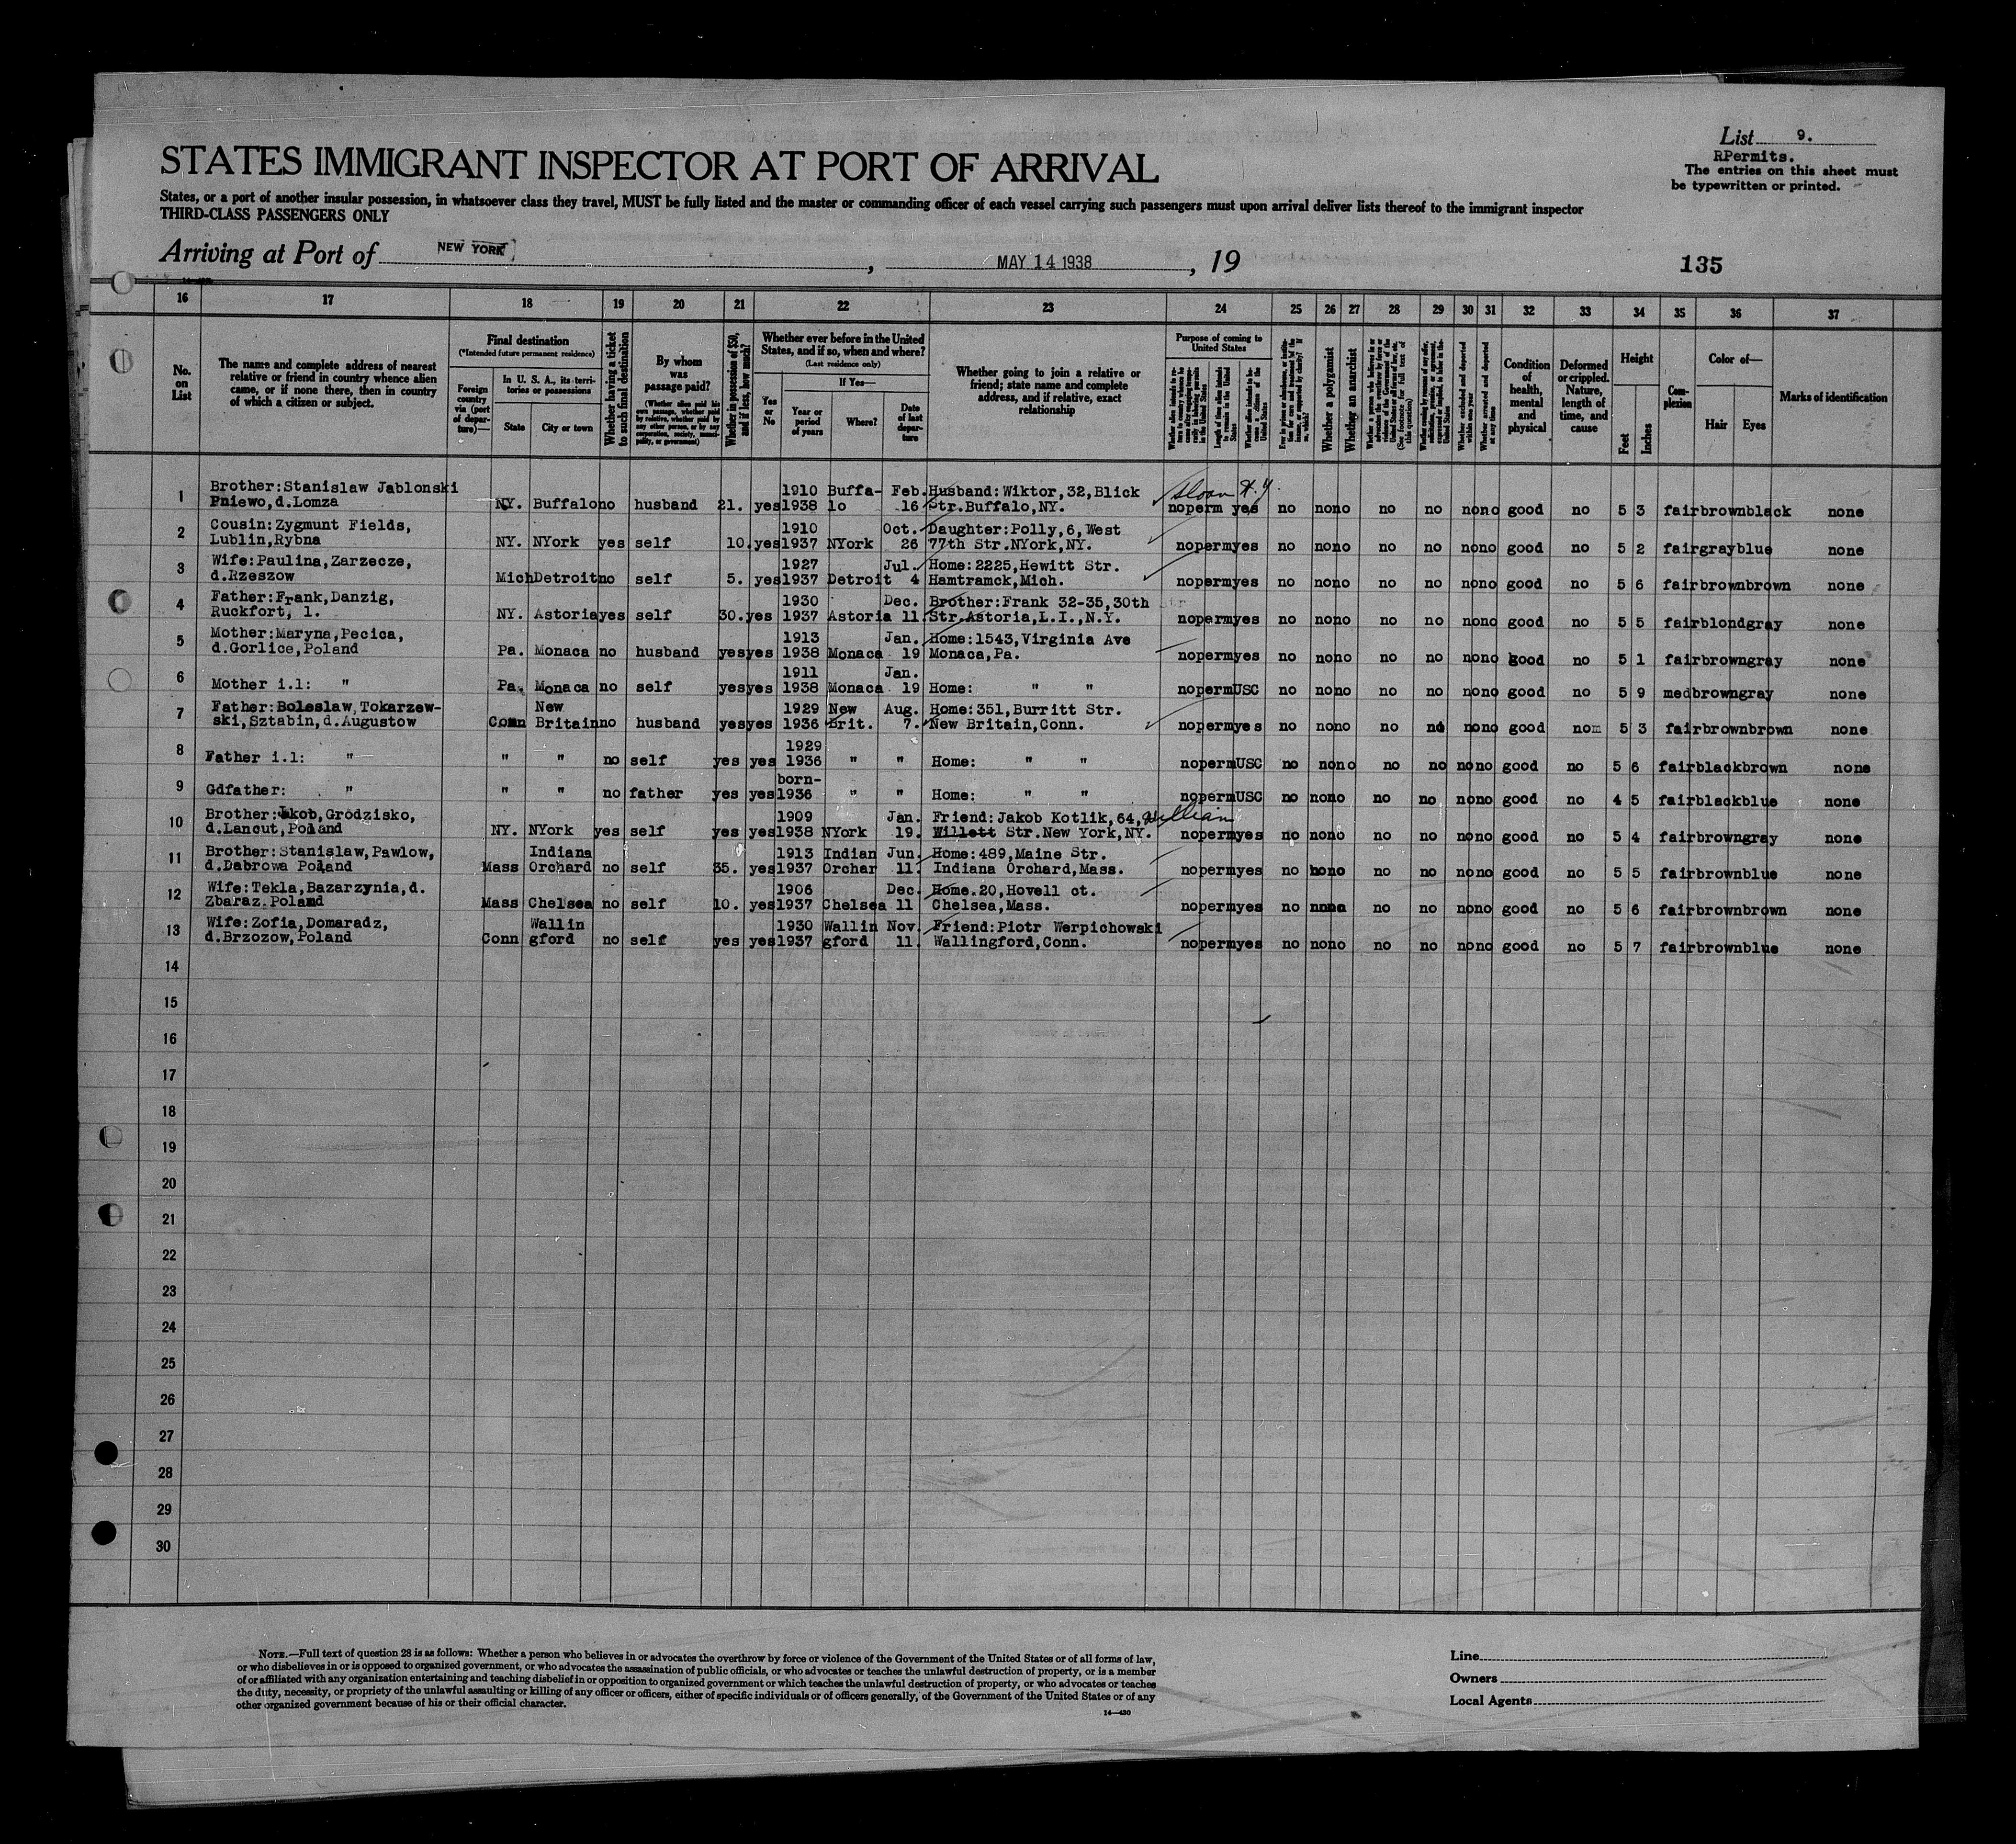 List 9.
RPermits.
STATES IMMIGRANT INSPECTOR AT PORT OF ARRIVAL
The entries on this sheet must
be typewritten or printed.
States, or a port of another insular possession, in whatsoever class they travel, MUST be fully listed and the master or commanding officer of each vessel carrying such passengers must upon arrival deliver lists thereof to the immigrant inspector
THIRD-CLASS PASSENGERS ONLY
Arriving at Port of NEW YORK, MAY 14 1938, 19
135
16 17 18 19 20 21 22 23 24 25 26 27 28 29 30 31 32 33 34 35 36 37
No. on List
The name and complete address of nearest relative or friend in country whence alien came, or if none there, then in country of which a citizen or subject.
Final destination
(*Intended future permanent residence)
Foreign country via (port of departure)—
In U. S. A., its territories or possessions
State City or town
Whether having a ticket to such final destination
By whom was passage paid?
(Whether alien paid his own passage, whether paid by relative, whether paid by any other person, or by any corporation, society, municipality, or government)
Whether in possession of $50, and if less, how much?
Whether ever before in the United States, and if so, when and where?
(Last residence only)
Yes or No
If Yes—
Year or period of years
Where?
Date of last departure
Whether going to join a relative or friend; state name and complete address, and if relative, exact relationship
Purpose of coming to United States
Length of time alien intends to remain in the United States
Whether alien intends to become a citizen of the United States
Whether a polygamist
Whether an anarchist
Whether excluded and deported within one year
Whether arrested and deported at any time
Condition of health, mental and physical
Deformed or crippled. Nature, length of time, and cause
Height
Feet Inches
Complexion
Color of—
Hair Eyes
Marks of identification
Brother:Stanislaw Jablonski 1910 Buffa- Feb. Husband:Wiktor,32,Blick Sloan N.Y.
1 Pniewo,d.Lomza NY. Buffalo no husband 21. yes 1938 lo 16 Str.Buffalo,NY. no perm yes no no no no no no no good no 5 3 fair brown black none
Cousin:Zygmunt Fields, 1910 Oct. Daughter:Polly,6,West
2 Lublin,Rybna NY. NYork yes self 10. yes 1937 NYork 26 77th Str.NYork,NY. no perm yes no no no no no no no good no 5 2 fair gray blue none
Wife:Paulina,Zarzecze, 1927 Jul. Home:2225,Hewitt Str.
3 d.Rzeszow Mich Detroit no self 5. yes 1937 Detroit 4 Hamtramck,Mich. no perm yes no no no no no no no good no 5 6 fair brown brown none
Father:Frank,Danzig, 1930 Dec. Brother:Frank 32-35,30th Str
4 Ruckfort, l. NY. Astoria yes self 30. yes 1937 Astoria 11 Str.Astoria,L.I.,N.Y. no perm yes no no no no no no no good no 5 5 fair blond gray none
Mother:Maryna,Pecica, 1913 Jan. Home:1543,Virginia Ave
5 d.Gorlice,Poland Pa. Monaca no husband yes yes 1938 Monaca 19 Monaca,Pa. no perm yes no no no no no no no good no 5 1 fair brown gray none
1911 Jan.
6 Mother i.l: " Pa. Monaca no self yes yes 1938 Monaca 19 Home: " " no perm USC no no no no no no no good no 5 9 med brown gray none
Father:Boleslaw,Tokarzew- New 1929 New Aug. Home:351,Burritt Str.
7 ski,Sztabin,d.Augustow Conn Britain no husband yes yes 1936 Brit. 7. New Britain,Conn. no perm yes no no no no no no no good nom 5 3 fair brown brown none
1929
8 Father i.l: " " " no self yes yes 1936 " " Home: " " no perm USC no no no no no no no good no 5 6 fair black brown none
born-
9 Gdfather: " " " no father yes yes 1936 " " Home: " " no perm USC no no no no no no no good no 4 5 fair black blue none
Brother:Jkob,Grodzisko, 1909 Jan. Friend:Jakob Kotlik,64, William
10 d.Lancut,Poland NY. NYork yes self yes yes 1938 NYork 19. Willett Str.New York,NY. no perm yes no no no no no no no good no 5 4 fair brown gray none
Brother:Stanislaw,Pawlow, Indiana 1913 Indian Jun. Home:489,Maine Str.
11 d.Dabrowa Poland Mass Orchard no self 35. yes 1937 Orchar 11. Indiana Orchard,Mass. no perm yes no no no no no no no good no 5 5 fair brown blue none
Wife:Tekla,Bazarzynia,d. 1906 Dec. Home.20,Hovell ct.
12 Zbaraz.Poland Mass Chelsea no self 10. yes 1937 Chelsea 11 Chelsea,Mass. no perm yes no no no no no no no good no 5 6 fair brown brown none
Wife:Zofia,Domaradz, Wallin 1930 Wallin Nov. Friend:Piotr Werpichowski
13 d.Brzozow,Poland Conn gford no self yes yes 1937 gford 11. Wallingford,Conn. no perm yes no no no no no no no good no 5 7 fair brown blue none
14
15
16
17
18
19
20
21
22
23
24
25
26
27
28
29
30
NOTE.—Full text of question 28 is as follows: Whether a person who believes in or advocates the overthrow by force or violence of the Government of the United States or of all forms of law,
or who disbelieves in or is opposed to organized government, or who advocates the assassination of public officials, or who advocates or teaches the unlawful destruction of property, or is a member
of or affiliated with any organization entertaining and teaching disbelief in or opposition to organized government or which teaches the unlawful destruction of property, or who advocates or teaches
the duty, necessity, or propriety of the unlawful assaulting or killing of any officer or officers, either of specific individuals or of officers generally, of the Government of the United States or of any
other organized government because of his or their official character.
14—430
Line
Owners
Local Agents